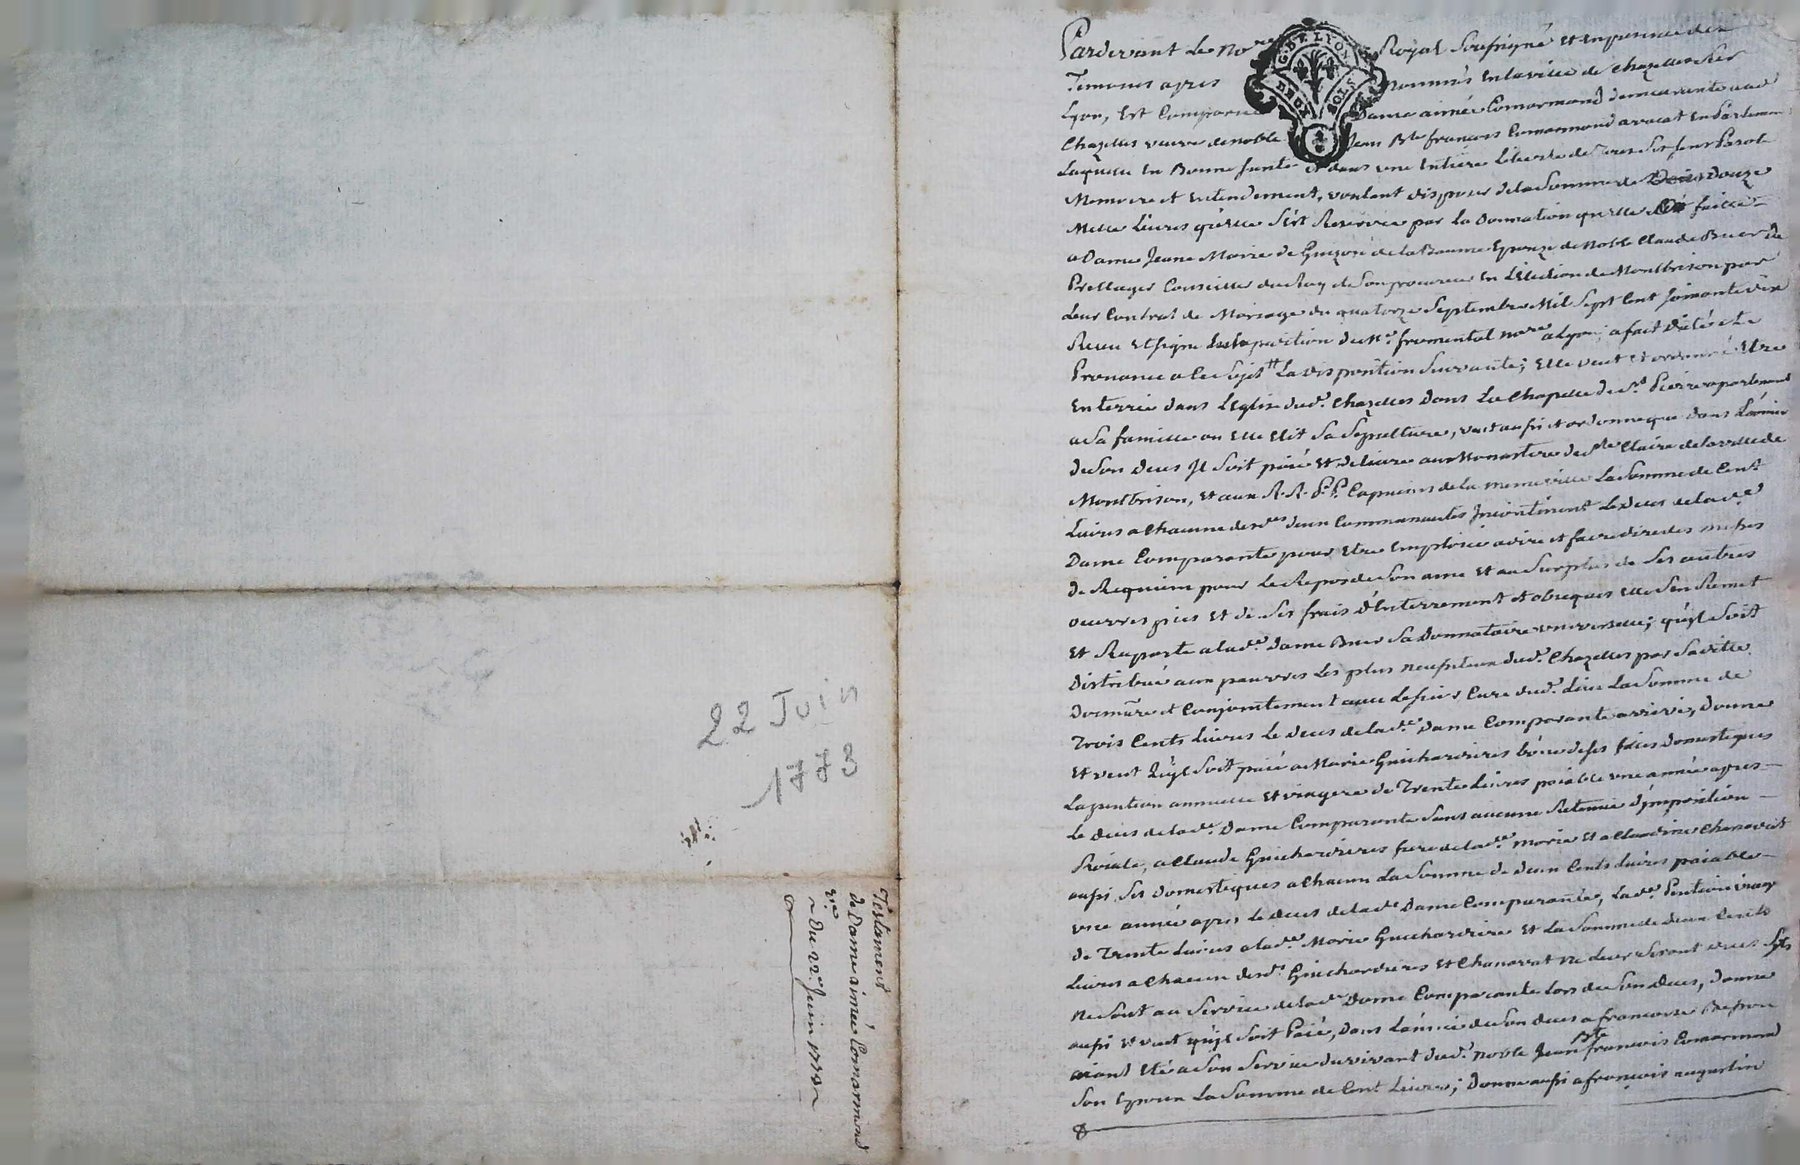 22 Juin
1773
Testament
de Dame aimée Comarmond
Du 22e Juin 1773
G. DE LYON
DEUX SOLS
Pardevant Le Nore Royal Soussigné Et En presence des
Temoins apres Nommés En la ville de Chazelles Sur
Lyon, Est Comparue Dame aimée Comarmond demeurante aud
Chazelles veuve de noble Jean Bte françois Comarmond avocat En Parlement
Laquelle En Bonne Santé et dans une Entiere Liberté de Ses Parole
Memoire et Entendement, voulant disposer de la Somme de Douze
Mille Livres qu'elle S'est Reservée par La Donnation qu'elle a faitte
a Dame Jeane Marie de la Baume Epouse de Noble Claude Buer De
Prellager Conseiller du Roy Son procureur En L'Election de Montbrison par
Leur Contrat de Mariage du quatorze Septembre Mil Sept Cent Soixante dix
Receu Et signe Me. fromental nore a Lyon; a fait dicté Et
Prononcé a Ce Sujet La disposition Suivante; Elle veut Et ordonne Etre
Enterrée dans L'Eglise dud. Chazelles Dans La Chapelle de St Pierre apartenant
a Sa famille ou Elle Elit Sa Sepulture, veut aussi et ordonne que dans L'année
de Son deces Il Soit paié Et delivré aux Monastere de Ste Claire de la ville de
Montbrison, Et aux R.R. P.P. Capucins de la meme ville La Somme de Cent
Livres a Chacune desdes deux Communautés Incontinent Le deces de lade
Dame Comparante pour Etre Emploiée a dire et faire dire des messes
de Requiem pour Le Repos de Son ame Et au Surplus de Ses autres
oeuvres pies Et de Ses frais d'Enterrement et obseques Elle S'en Remet
Et Raporte a lade. Dame Buer Sa Donnataire universelle; qu'yl Soit
Distribué aux pauvres Les plus necessiteux dud. Chazelles par Sadite
Donatre et Conjointement avec Le Sieur Curé dud. Lieu La Somme de
Trois Cents Livres Le deces de lade Dame Comparante arrivé, Donne
Et veut Qu'yl Soit paié a Marie Guichardieres L'une de Ses domestiques
La pention annuelle Et viagere de Trente Livres paiable une année apres
Le deces de lade. Dame Comparante Sans aucune Retenue d'Imposition
Roiale, a Claude Guichardieres frere de lade Marie Et a Claudine Chanavat
aussi Ses domestiques a Chacun La Somme de deux Cents Livres paiable
une année apres Le deces de lade Dame Comparante, Lade Pention viagre
de Trente Livres a lade Marie Guichardiere Et La Somme de deux Cents
Livres a Chacun desd. Guichardieres Et Chanavat ne Leur Seront dues S'yls
ne Sont au Service de lade Dame Comparante Lors de Son deces, donne
aussi Et veut qu'yl Soit Paié, dans L'année de Son deces a francoise
aiant Eté a Son Service du vivant dud. noble Jean Bte françois Comarmond
Son Epoux La Somme de Cent Livres; Donne aussi a françois augustin